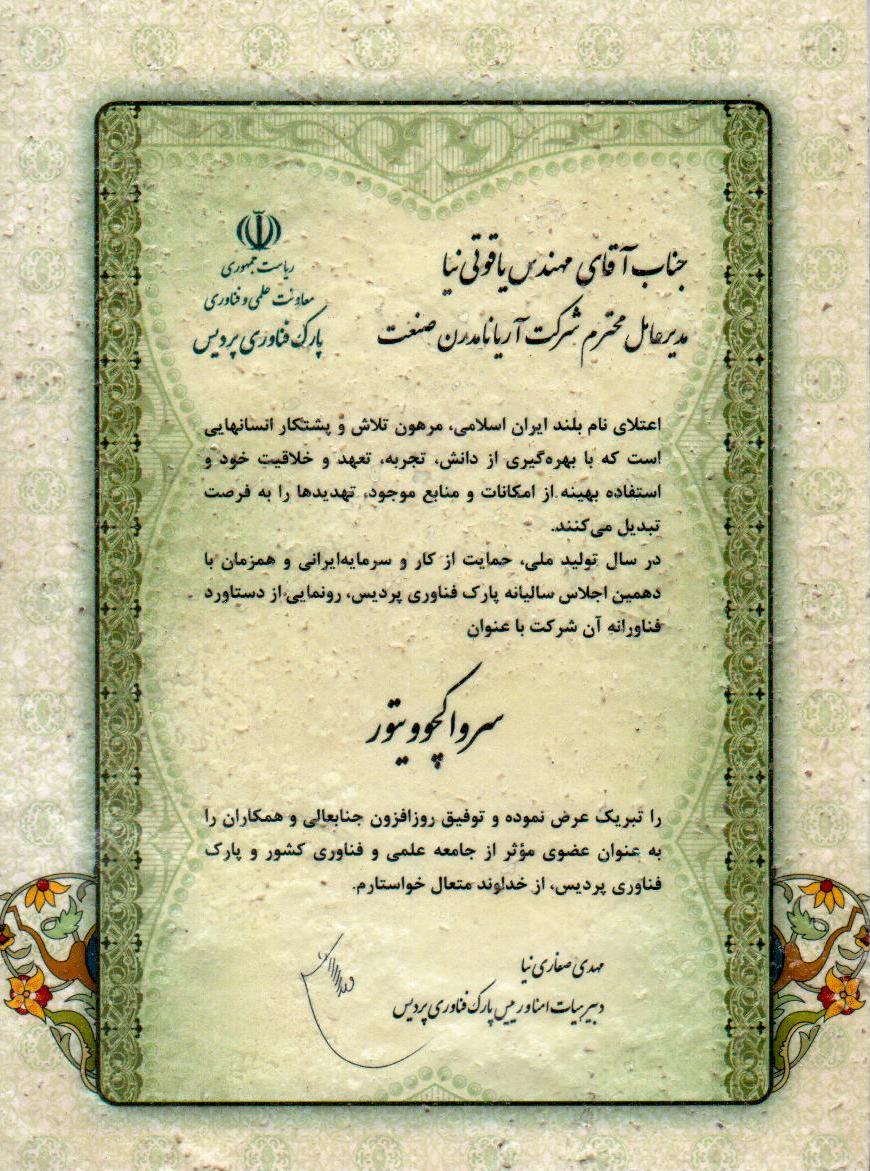 ریاست جمهوری
معاونت علمی و فناوری
پارک فناوری پردیس
جناب آقای مهندس یاقوتی نیا
مدیرعامل محترم شرکت آریانامدرن صنعت
اعتلای نام بلند ایران اسلامی، مرهون تلاش و پشتکار انسانهایی
است که با بهره‌گیری از دانش، تجربه، تعهد و خلاقیت خود و
استفاده بهینه از امکانات و منابع موجود، تهدیدها را به فرصت
تبدیل می‌کنند.
در سال تولید ملی، حمایت از کار و سرمایه‌ایرانی و همزمان با
دهمین اجلاس سالیانه پارک فناوری پردیس، رونمایی از دستاورد
فناورانه آن شرکت با عنوان
سرواکچوویتور
را تبریک عرض نموده و توفیق روزافزون جنابعالی و همکاران را
به عنوان عضوی مؤثر از جامعه علمی و فناوری کشور و پارک
فناوری پردیس، از خداوند متعال خواستارم.
مهدی صفاری نیا
دبیر هیات امنا و رییس پارک فناوری پردیس